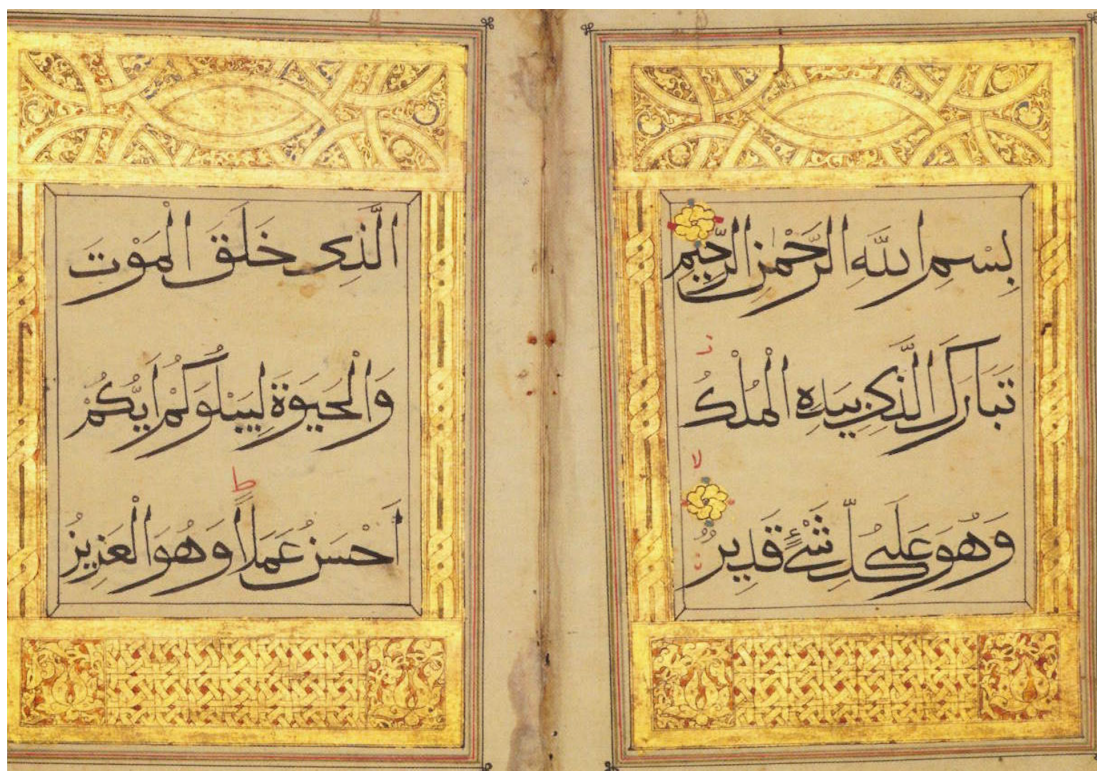 بِسْمِ اللَّهِ الرَّحْمٰنِ الرَّحِيمِ
تَبَارَكَ الَّذِي بِيَدِهِ الْمُلْكُ
وَهُوَ عَلَى كُلِّ شَيْءٍ قَدِيرٌ
الَّذِي خَلَقَ الْمَوْتَ
وَالْحَيَوٰةَ لِيَبْلُوَكُمْ أَيُّكُمْ
أَحْسَنُ عَمَلًا ط وَهُوَ الْعَزِيزُ